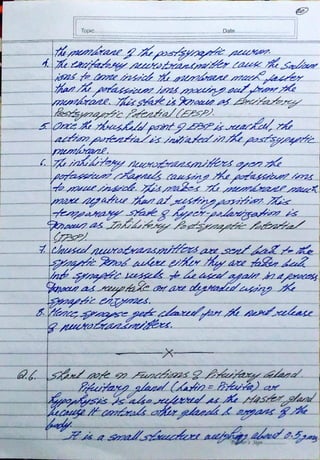 Topic Date
the membrane of the postsynaptic neuron.
4. The excitatory neurotransmitter cause the Sodium
ions to come inside the membrane much faster
than the potassium ions moving out from the
membrane. This state is known as Excitatory
Postsynaptic Potential (EPSP).
5. Once the threshold point of EPSP is reached, the
action potential is initiated in the postsynaptic
membrane.
6. The inhibitory neurotransmitters open the
potassium channels causing the potassium ions
to move inside. This makes the membrane much
more negative than at resting position. This
temporary state of hyper-polarisation is
known as Inhibitory Postsynaptic Potential
(IPSP)
7. Unused neurotransmitters are sent back to the
synaptic knob where either they are taken back
into synaptic vessels to be used again in a process
known as reuptake or are degraded using the
synaptic enzymes.
8. Hence, synapse gets cleared for the next release
of neurotransmitters.
X
Q.6. Short note on Functions of Pituitary Gland
Pituitary gland (Latin = Pituita) or
hypophysis is also referred as the Master gland
because it controls other glands & organs of the
body.
It is a small structure weighing about 0.5 gms
Sign